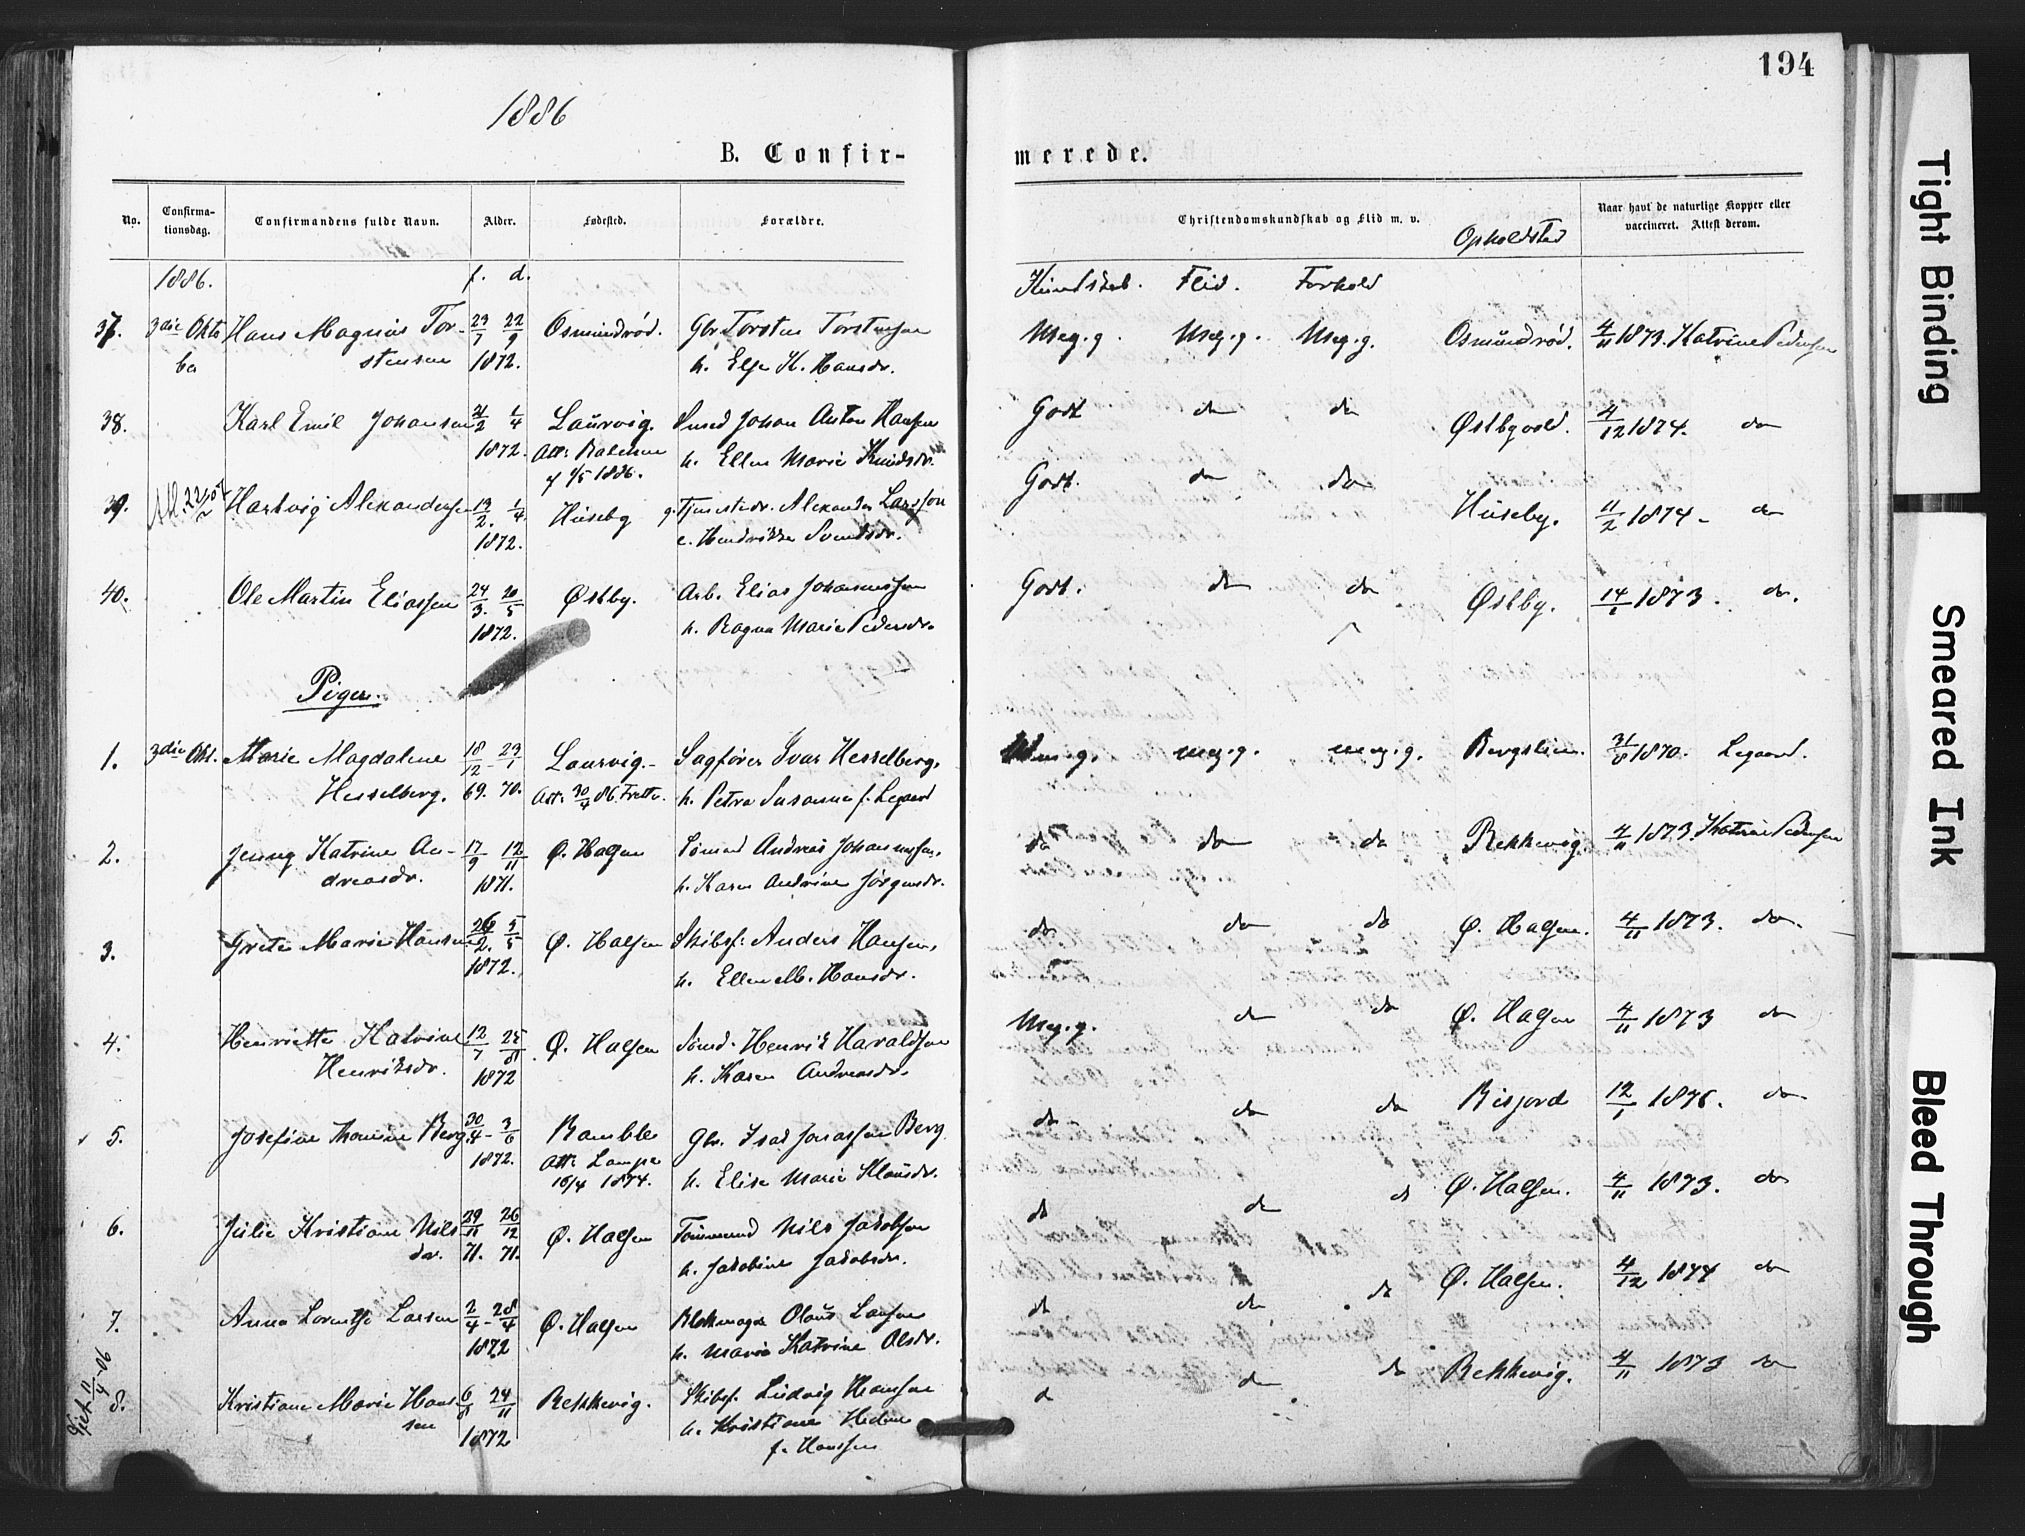 1886
194
B. Confir-
merede.
No.
Confirma-
tionsdag.
Confirmandens fulde Navn.
Alder.
Fødested.
Forældre.
Christendomskundskab og Flid m. v.
Opholdsted
Naar havt de naturlige Kopper eller
vaccineret. Attest derom.
1886.
f. d.
Kundskab. Flid. Forhold
37. 3die Okto Hans Magnus Tor- 23/7 22/9 Osmundrød. Gbr. Torsten Torstensen
ber stensen 1872. h. Else K. Hansdr.
Meg. g. Meg. g. Meg. g. Osmundrød. 4/11 1873. Katrine Pedersen
38. Karl Emil Johansen 21/2 1/4 Laurvig. Smed Johan Anton Hansen
1872. Att: h. Ellen Marie Knudsdr.
1/5 1886.
Godt do do Østbyvold. 4/12 1874. do
39. Hartvig Alexandersen 13/2. 1/4. Huseby g. Tjenestedr. Alexander Larsson
1872. e. Hendrikke Svendsdr.
Godt. do do Huseby. 11/2 1874. do
40. Ole Martin Eliassen 24/3. 20/5 Østby. Arb. Elias Johannessen
1872. h. Ragna Marie Pedersdr.
Godt. do do Østby. 14/1 1873. do.
Piger.
1. 3die Okt. Marie Magdalene 18/12 - 23/1 Laurvig. Sagfører Ivar Hesselberg.
Hesselberg. 69. 70. Att: 30/4 86. h. Petra Susanne f. Legaard
M. g. meg. g. meg. g. 31/8 1870. Legaard.
2. Jenny Katrine An- 17/9 12/11 Ø. Halsen Sømand Andreas Johannessen,
dreasdr. 1871. h. Karen Andrine Jørgensdr.
do do do Rekkevig. 4/11 1873. Katrine Pedersen
3. Grete Marie Hansen 26/2. 5/5 Ø. Halsen Skibsf. Anders Hansen,
1872. h. Ellen M. Hansdr.
do do do Ø. Halsen. 4/11 1873. do.
4. Henriette Katrine 12/7 25/8. Ø. Halsen Sømd. Henrik Haraldsen
Henriksdr. 1872 h. Karen Andreasdr.
Meg. g. do do Ø. Halsen 4/11 1873 do
5. Josefine Thomine Berg 30/4 - 3/6 Bamble Gbr. Isak Jonassen Berg
1872. Att: Lampe h. Elise Marie Klausdr.
16/4 1874.
do do do Risjord 12/1 1876. do
6. Julie Kristiane Nils 29/11 26/12 Ø. Halsen Tømmermd Nils Jakobsen
dr. 71. 71. h. Jakobine Jakobsdr.
do do do Ø. Halsen. 4/11 1873. do
7. Anna Lorentse Larsen 2/4 - 28/4 Ø. Halsen Blokmager Olaus Larsen
1872 h. Marie Katrine Olsdr.
do do do Ø. Halsen. 4/12 1874 do
8. Kristiane Marie Han- 6/8 24/11 Rekkevig. Skibsf. Ludvig Hansen
sen 1872 h. Kristiane Helene
f. Hanssen
d do do Rekkevig. 4/11 1873 do
11/4-06
Tight Binding
Smeared Ink
Bleed Through